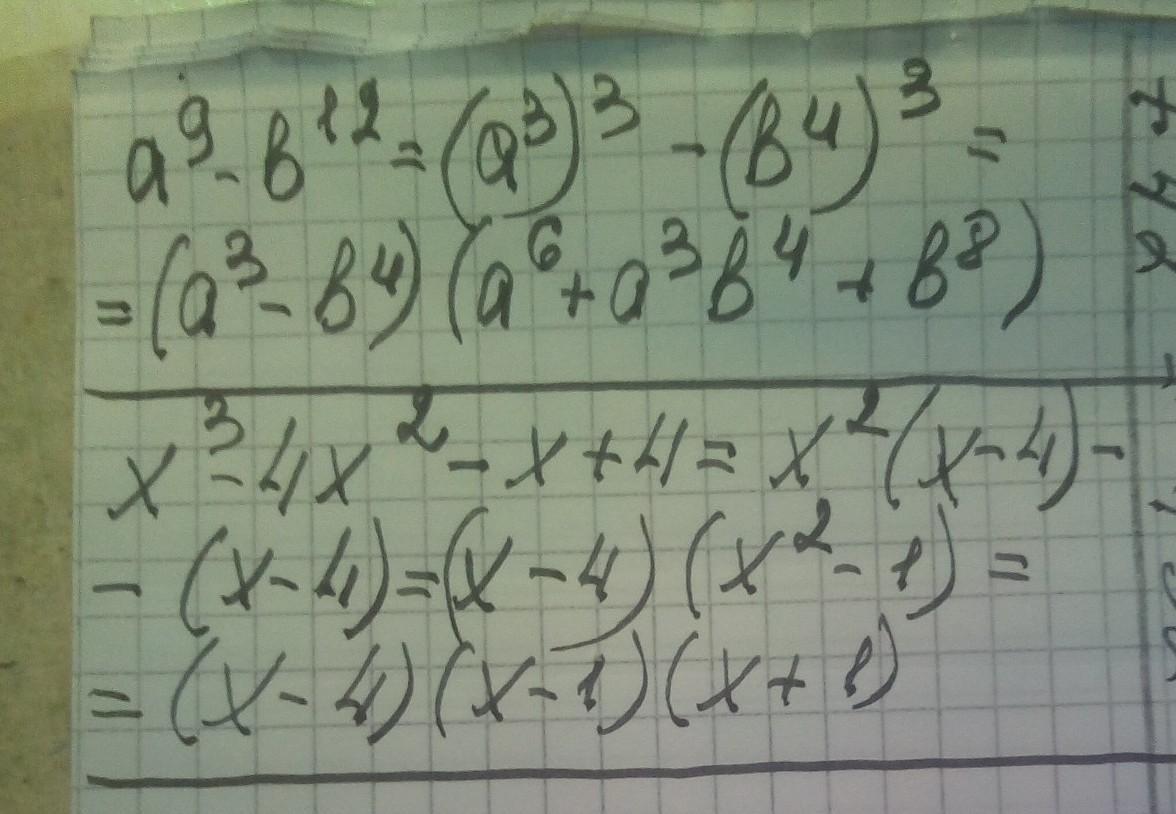 a⁹ - b¹² = (a³)³ - (b⁴)³ =
= (a³ - b⁴) (a⁶ + a³b⁴ + b⁸)
x³ - 4x² - x + 4 = x² (x - 4) -
- (x - 4) = (x - 4) (x² - 1) =
= (x - 4) (x - 1) (x + 1)